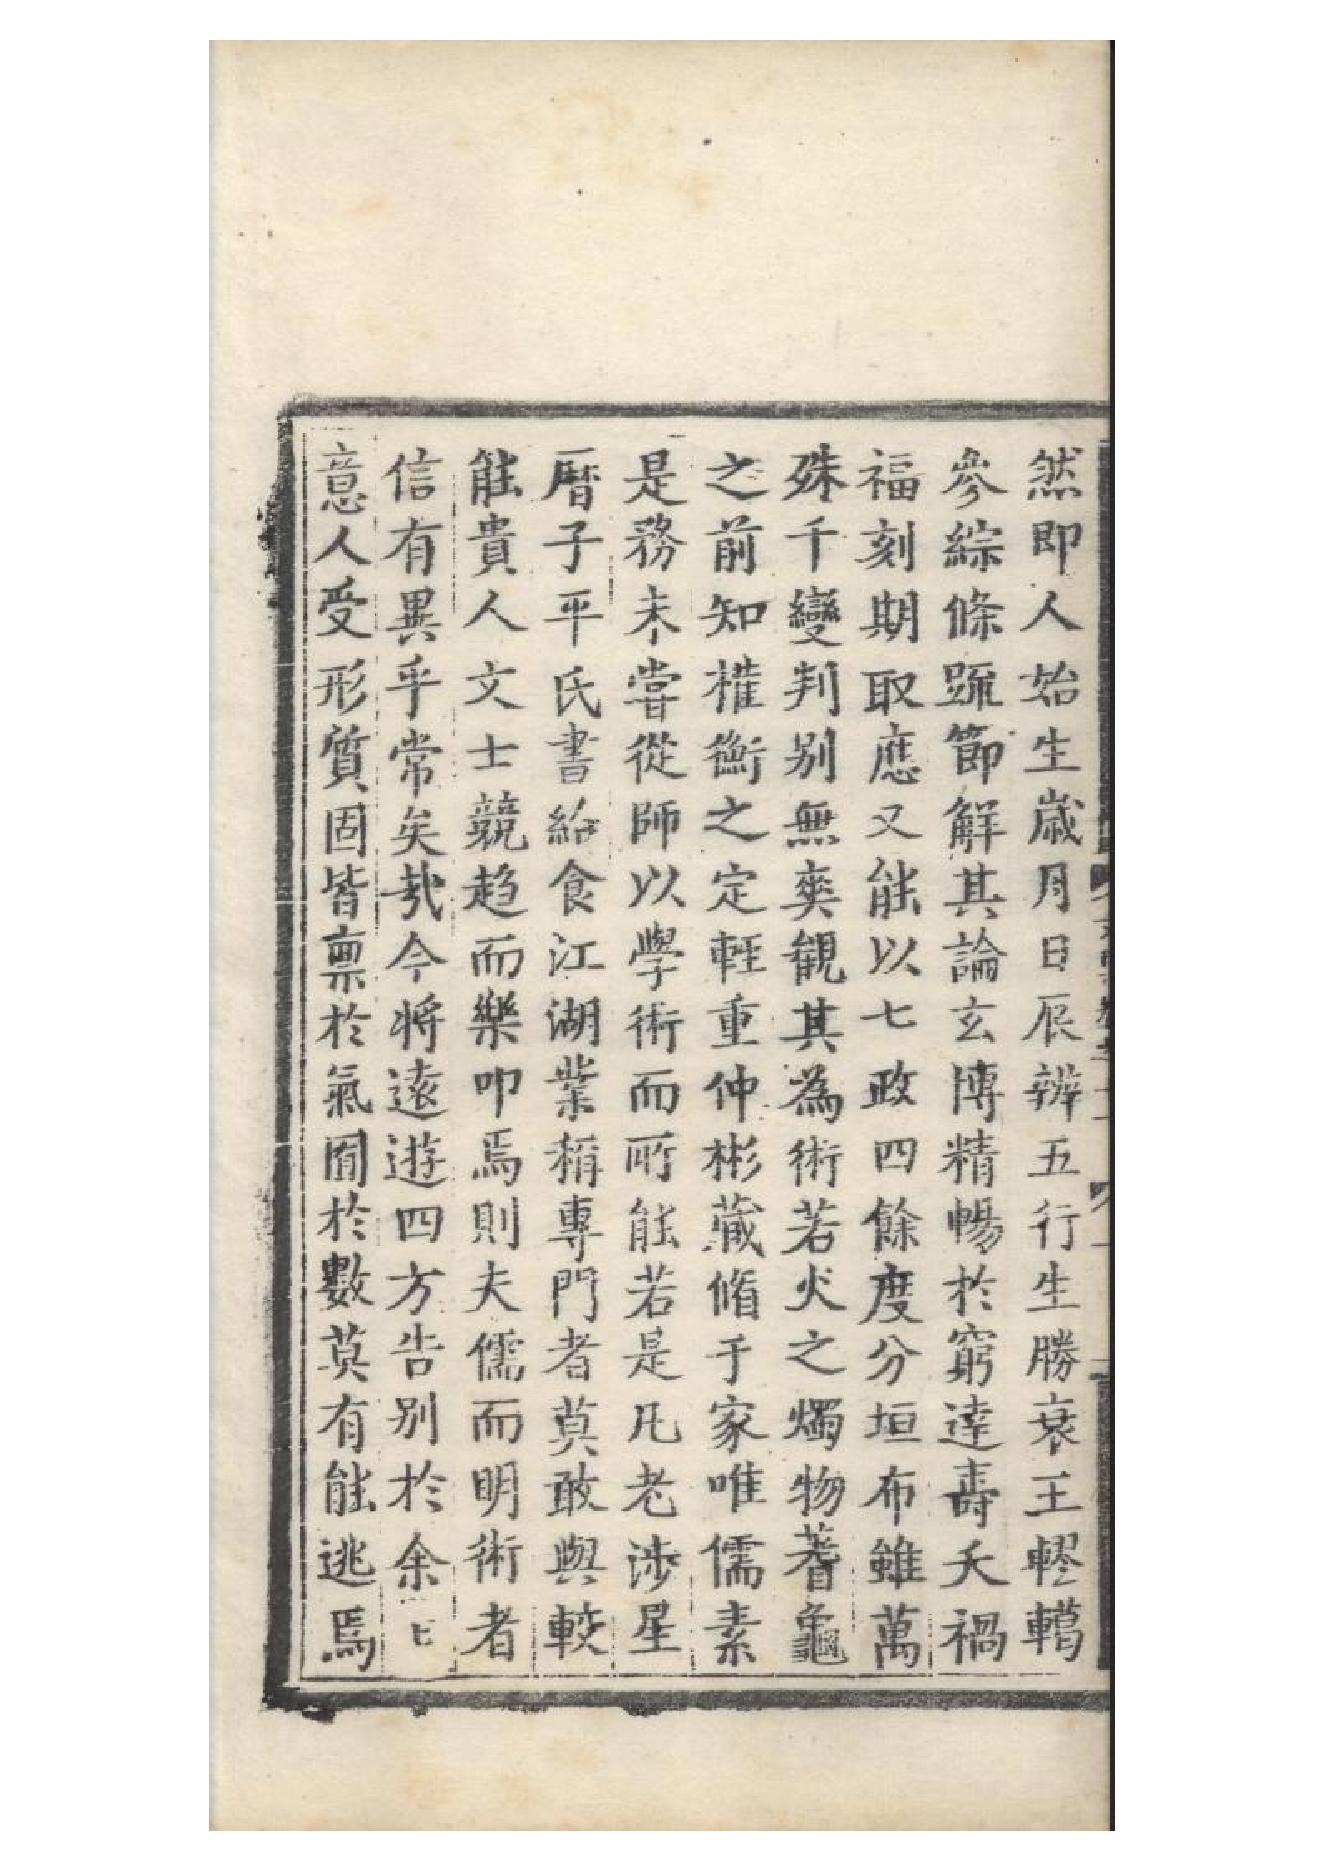 然即人始生歲月日辰辨五行生勝衰王轇轕
參綜條䟽節解其論玄博精暢於窮達壽夭禍
福刻期取應又能以七政四餘度分垣布雖萬
殊千變判别無爽觀其為術若火之燭物蓍龜
之前知權衡之定輕重仲彬藏脩于家唯儒素
是務未嘗從師以學術而所能若是凡老涉星
曆子平氏書給食江湖業稱專門者莫敢與較
能貴人文士競趋而樂叩焉則夫儒而明術者
信有異乎常矣㢤今將遠遊四方告别於余
意人受形質固皆禀於氣囿於數莫有能逃焉